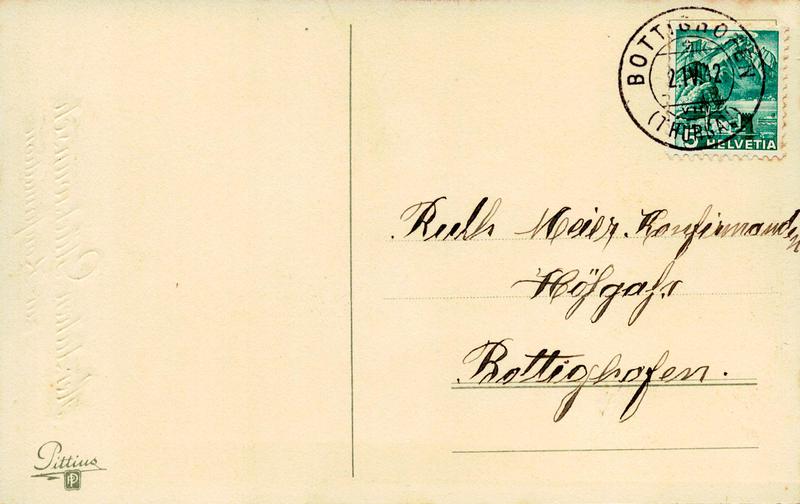 BOTTIGHOFEN
2.IV.42
(THURGAU)
5 HELVETIA
Ruth Meier. Konfirmanden
Höfgass
Bottighofen.
Pittius